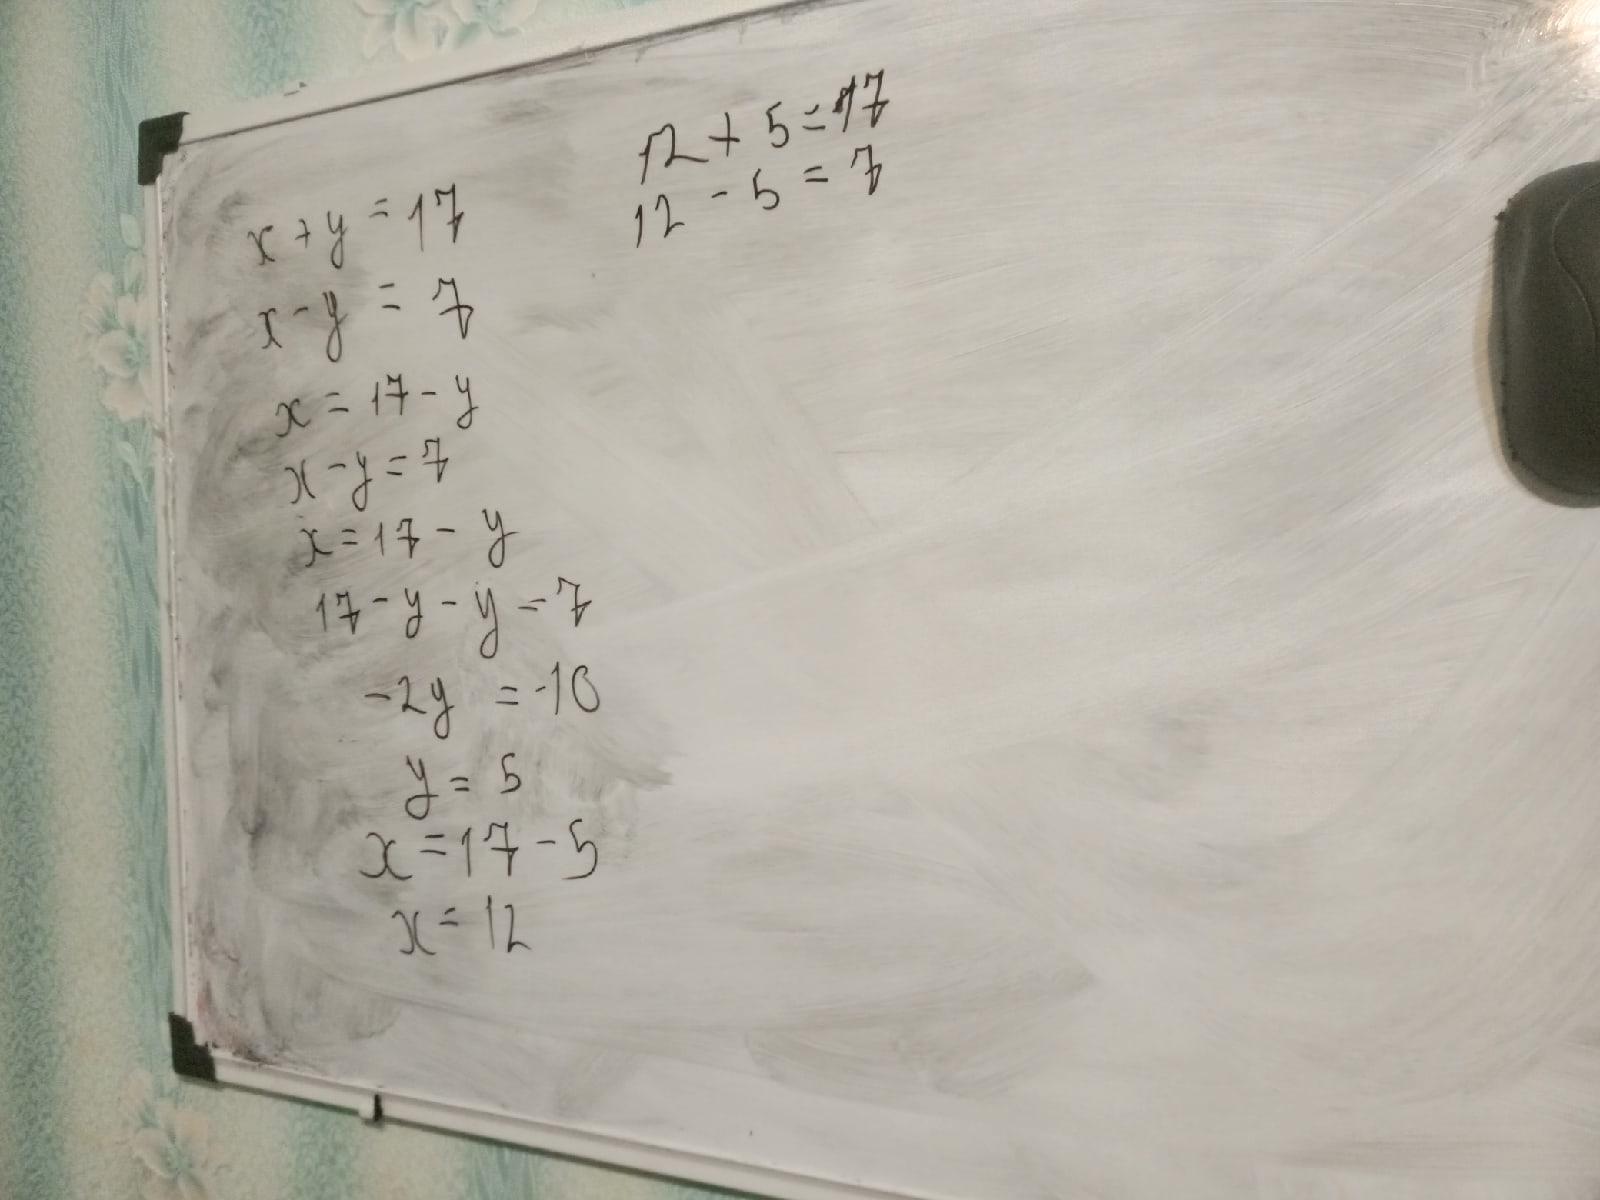 x + y = 17
x - y = 7
x = 17 - y
x - y = 7
x = 17 - y
17 - y - y = 7
-2y = -10
y = 5
x = 17 - 5
x = 12
12 + 5 = 17
12 - 5 = 7